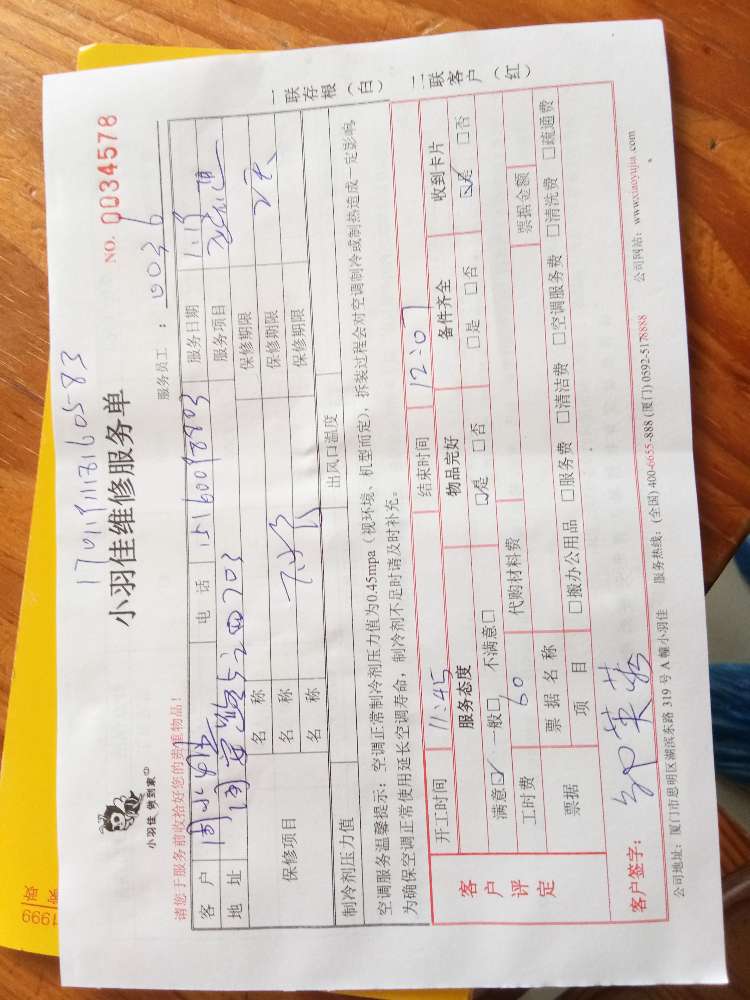 小羽佳维修服务单
NO. 0034578
小羽佳 俐到家
请您于服务前收拾好您的贵重物品!
服务员工:0036
客户 电话 服务日期
地址 服务项目
保修项目 名称 保修期限
名称 保修期限
名称 保修期限
制冷剂压力值 出风口温度
空调服务温馨提示:空调正常制冷剂压力值为0.45mpa(视环境、机型而定),拆装过程会对空调制冷或制热造成一定影响,
为确保空调正常使用延长空调寿命,制冷剂不足时请及时补充。
一联存根(白) 二联客户(红)
客户评定
开工时间 11:45 结束时间 12:07
服务态度 物品完好 备件齐全 收到卡片
满意☑ 一般□ 不满意□ ☑是 □否 □是 □否 ☑是 □否
工时费 60 代购材料费
票据 票据名称 票据金额
项目 □搬办公用品 □服务费 □清洁费 □空调服务费 □清洗费 □疏通费
客户签字:
公司地址:厦门市思明区湖滨东路 319 号 A 幢小羽佳 服务热线:(全国) 400-6655-888 (厦门) 0592-5178888 公司网站:www.xiaoyujia.com
1999